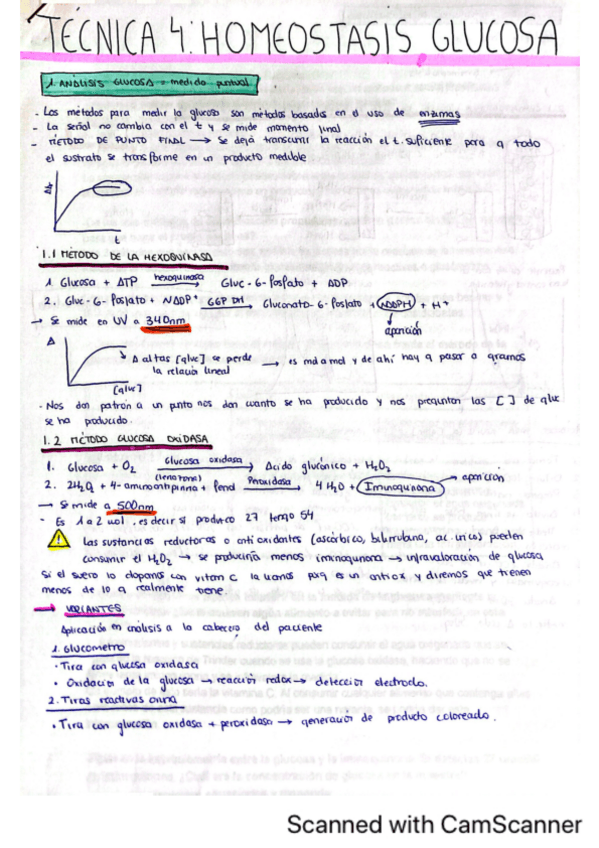 TÉCNICA 4: HOMEOSTASIS GLUCOSA
1. ANÁLISIS GLUCOSA = medida puntual
- Los métodos para medir la glucosa son métodos basados en el uso de enzimas
- La señal no cambia con el t y se mide momento final
- MÉTODO DE PUNTO FINAL → Se deja transcurrir la reacción el t. suficiente para q todo
el sustrato se transforme en un producto medible
t
1.1 MÉTODO DE LA HEXOQUINASA
1. Glucosa + ATP hexoquinasa → Gluc-6-fosfato + ADP
2. Gluc-6-fosfato + NADP+ G6P DH → Gluconato-6-fosfato + NADPH + H+
→ Se mide en UV a 340nm
aparición
A
A altas [gluc] se pierde → es mol a mol y de ahí hay q pasar a gramos
la relación lineal
[gluc]
- Nos dan patrón a un punto nos dan cuanto se ha producido y nos preguntan las [ ] de gluc
se ha producido.
1.2 MÉTODO GLUCOSA OXIDASA
1. Glucosa + O2 Glucosa oxidasa → Ácido glucónico + H2O2
2. 2H2O2 + 4-aminoantipirina + fenol Peroxidasa → 4 H2O + Iminoquinona → aparición
→ Se mide a 500nm
- Es 1 a 2 mol, es decir si produzco 27 tengo 54
Las sustancias reductoras o antioxidantes (ascórbico, bilirrubina, ac. úrico) pueden
consumir el H2O2 → se produciría menos iminoquinona → infravaloración de glucosa
Si el suero lo dopamos con vitam C la liamos porq es un antiox y diremos que tienen
menos de lo q realmente tiene.
→ VARIANTES
Aplicación en análisis a la cabecera del paciente
1. Glucómetro
• Tira con glucosa oxidasa
• Oxidación de la glucosa → reacción redox → detección electrodo.
2. Tiras reactivas orina
• Tira con glucosa oxidasa + peroxidasa → generación de producto coloreado.
Scanned with CamScanner